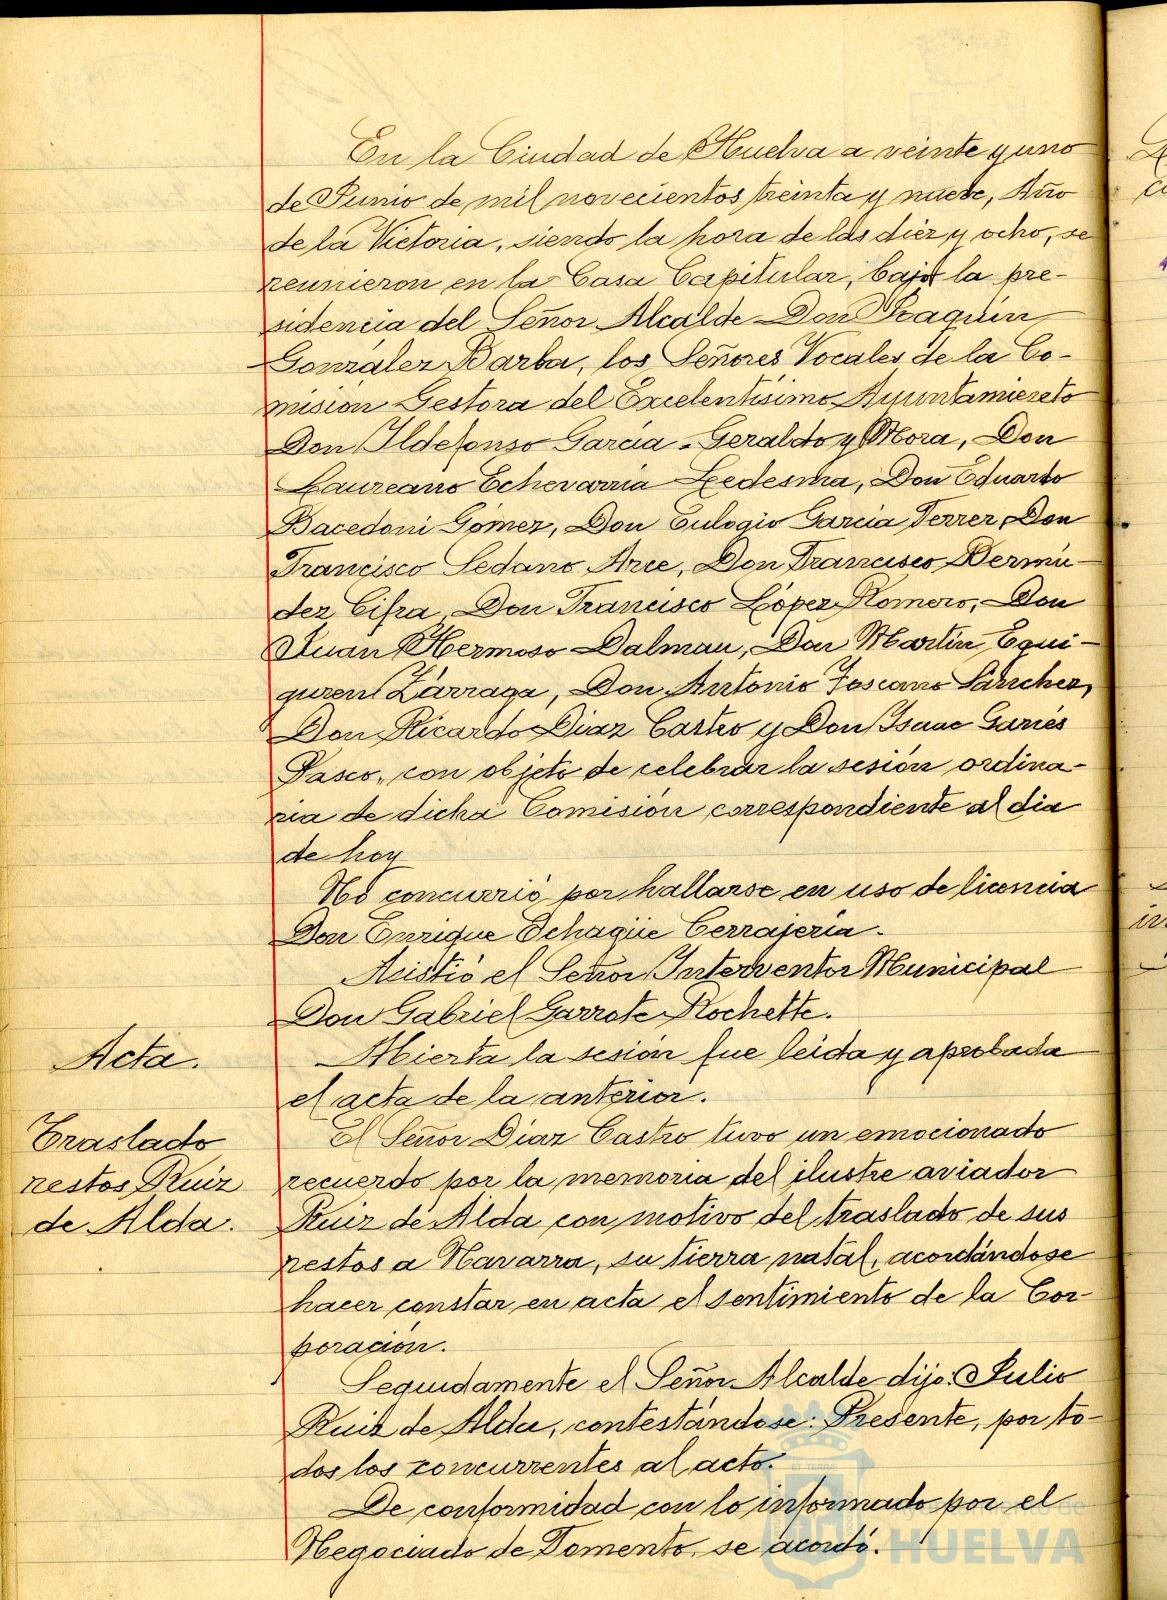 En la Ciudad de Huelva a veinte y uno
de Junio de mil novecientos treinta y nueve, Año
de la Victoria, siendo la hora de las diez y ocho, se
reunieron en la Casa Capitular, bajo la pre-
sidencia del Señor Alcalde Don Joaquín
González Barba, los Señores Vocales de la Co-
misión Gestora del Excelentísimo Ayuntamiento
Don Ildefonso García-Geraldo y Mora, Don
Laureano Echevarria Ledesma, Don Eduardo
Bacedoni Gómez, Don Eulogio Garcia Ferrer, Don
Francisco Sedano Arce, Don Francisco Bermú-
dez Cifra, Don Francisco López Romero, Don
Juan Hermoso Dalmau, Don Martín Equi-
guren Zárraga, Don Antonio Toscano Sánchez,
Don Ricardo Diaz Castro y Don Isaac Gariés
Pasco, con objeto de celebrar la sesión ordina-
ria de dicha Comisión correspondiente al dia
de hoy
No concurrió por hallarse en uso de licencia
Don Enrique Echagüe Cerrajería.
Asistió el Señor Interventor Municipal
Don Gabriel Garrote Rochette.
Acta.
Abierta la sesión fue leida y aprobada
el acta de la anterior.
Traslado
restos Ruiz
de Alda.
El Señor Díaz Castro tuvo un emocionado
recuerdo por la memoria del ilustre aviador
Ruiz de Alda con motivo del traslado de sus
restos a Navarra, su tierra natal, acordándose
hacer constar en acta el sentimiento de la Cor-
poración.
Seguidamente el Señor Alcalde dijo: Julio
Ruiz de Alda, contestándose: Presente, por to-
dos los concurrentes al acto.
De conformidad con lo informado por el
Negociado de Fomento, se acordó.
HUELVA